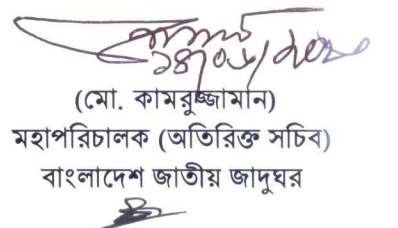 (মো. কামরুজ্জামান)
মহাপরিচালক (অতিরিক্ত সচিব)
বাংলাদেশ জাতীয় জাদুঘর